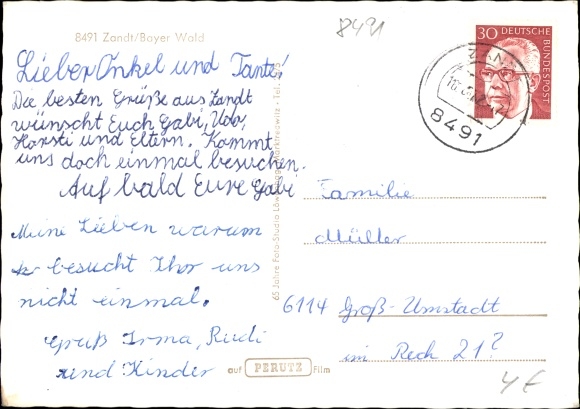 8491 Zandt/Bayer Wald
8491
30 DEUTSCHE
BUNDESPOST
8491
Lieber Onkel und Tante!
Die besten Grüße aus Zandt
wünscht Euch Gabi, Udo,
Horsti und Eltern. Kommt
uns doch einmal besuchen.
Auf bald Eure Gabi
Meine Lieben warum
besucht Ihr uns
nicht einmal.
Gruß Irma, Rudi
und Kinder
65 Jahre Foto-Studio
Marktredwitz · Tel.
auf PERUTZ Film
Familie
Müller
6114 Groß-Umstadt
im Rech 21?
4 €